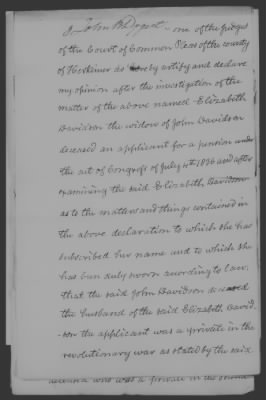 I John B. Dygert one of the judges
of the Court of Common Pleas of the county
of Herkimer do hereby certify and declare
my opinion after the investigation of the
matter of the above named Elizabeth
Davidson the widow of John Davidson
deceased an applicant for a pension under
the act of Congress of July 4th 1836 and after
examining the said Elizabeth Davidson
as to the matters and things contained in
the above declaration to which she has
subscribed her name and to which she
has been duly sworn according to law.
that the said John Davidson deceased
the husband of the said Elizabeth David-
-son the applicant was a private in the
revolutionary war as stated by the said
deceased who was a private in the